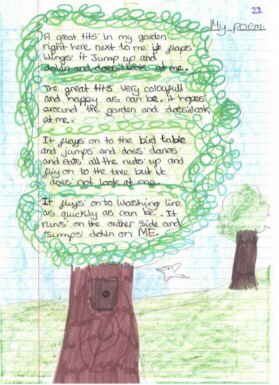 22
My poem.
A great tits in my garden
right here next to me it flaps
wings it Jump up and
down and doesn't look at me.
The great tits very colourfull
and happy as can be. it hopes
around the garden and doesn't look
at me.
It fleys on to the bird table
and jumps and does danos
and eats all the nuts up and
fliy on to the tree but it
does not look at me.
It fleys on to washing line
as quickly as can be. It
runs on the other side and
jumps down on ME.